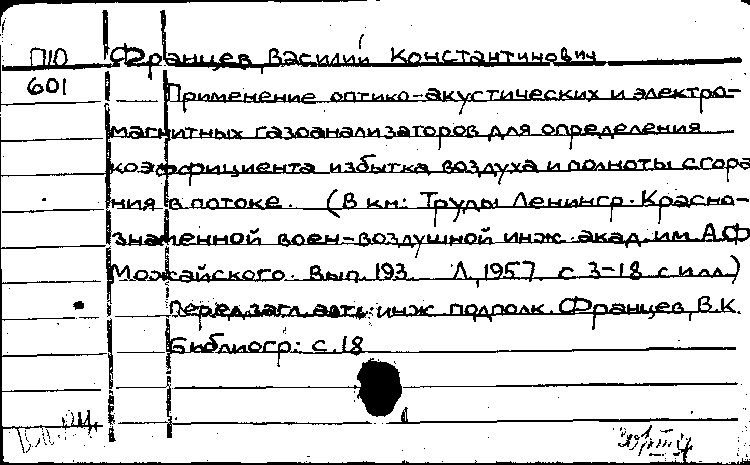 П10 Францев, Василий Константинович
601
Применение оптико-акустических и электро-
магнитных газоанализаторов для определения
коэффициента избытка воздуха и полноты сгора
ния в потоке. (В кн: Труды Ленингр. Красно-
знаменной воен-воздушной инж. акад. им. А.Ф
Можайского. Вып. 193. Л, 1957. с 3-18 с илл)
Перед загл. авт: инж подполк. Францев, В.К.
Библиогр: с. 18